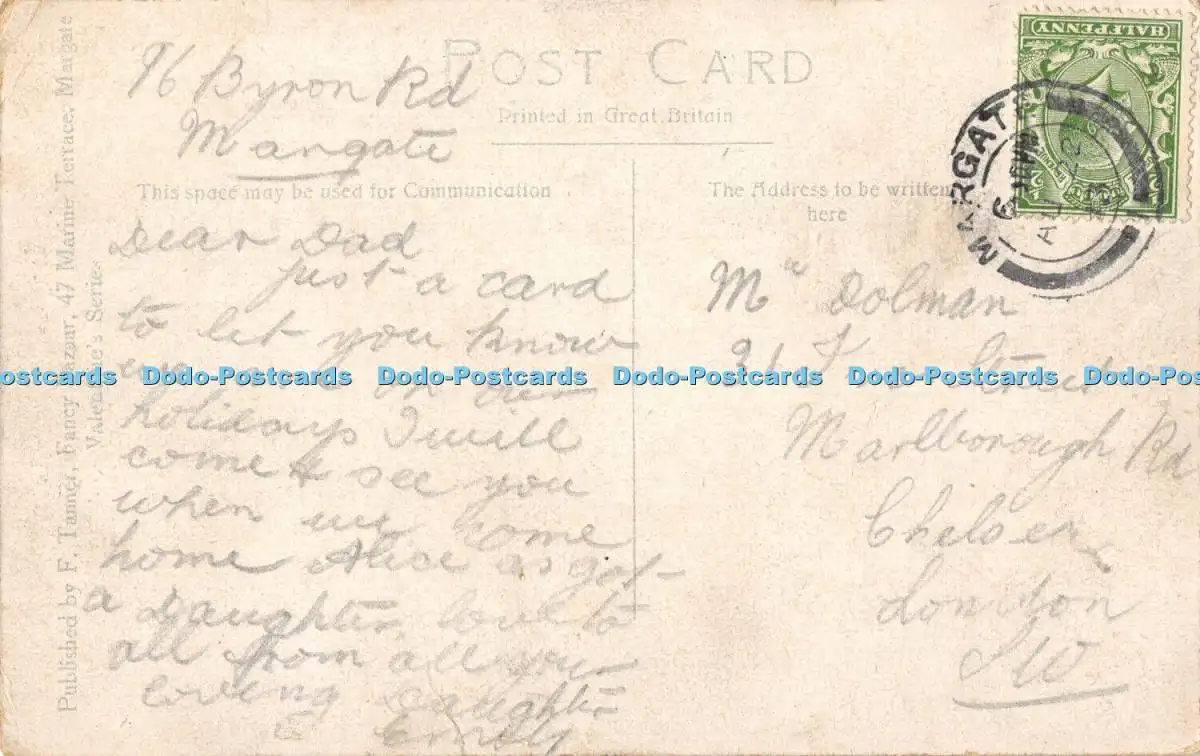 POST CARD
Printed in Great Britain
96 Byron Rd
Margate
This space may be used for Communication
The Address to be written
here
Dear Dad
just a card
to let you know
we on our
holidays I will
come & see you
when we come
home Alice as got
a Daughter, love to
all from all your
loveing daughter
Emily
Mr Dolman
Street
Marlborough Rd
Chelsea
London
SW
HALFPENNY
MARGATE
Published by F. Tanner, Fancy Bazaar, 47 Marine Terrace, Margate
Valentine's Series
Dodo-Postcards Dodo-Postcards Dodo-Postcards Dodo-Postcards Dodo-Postcards